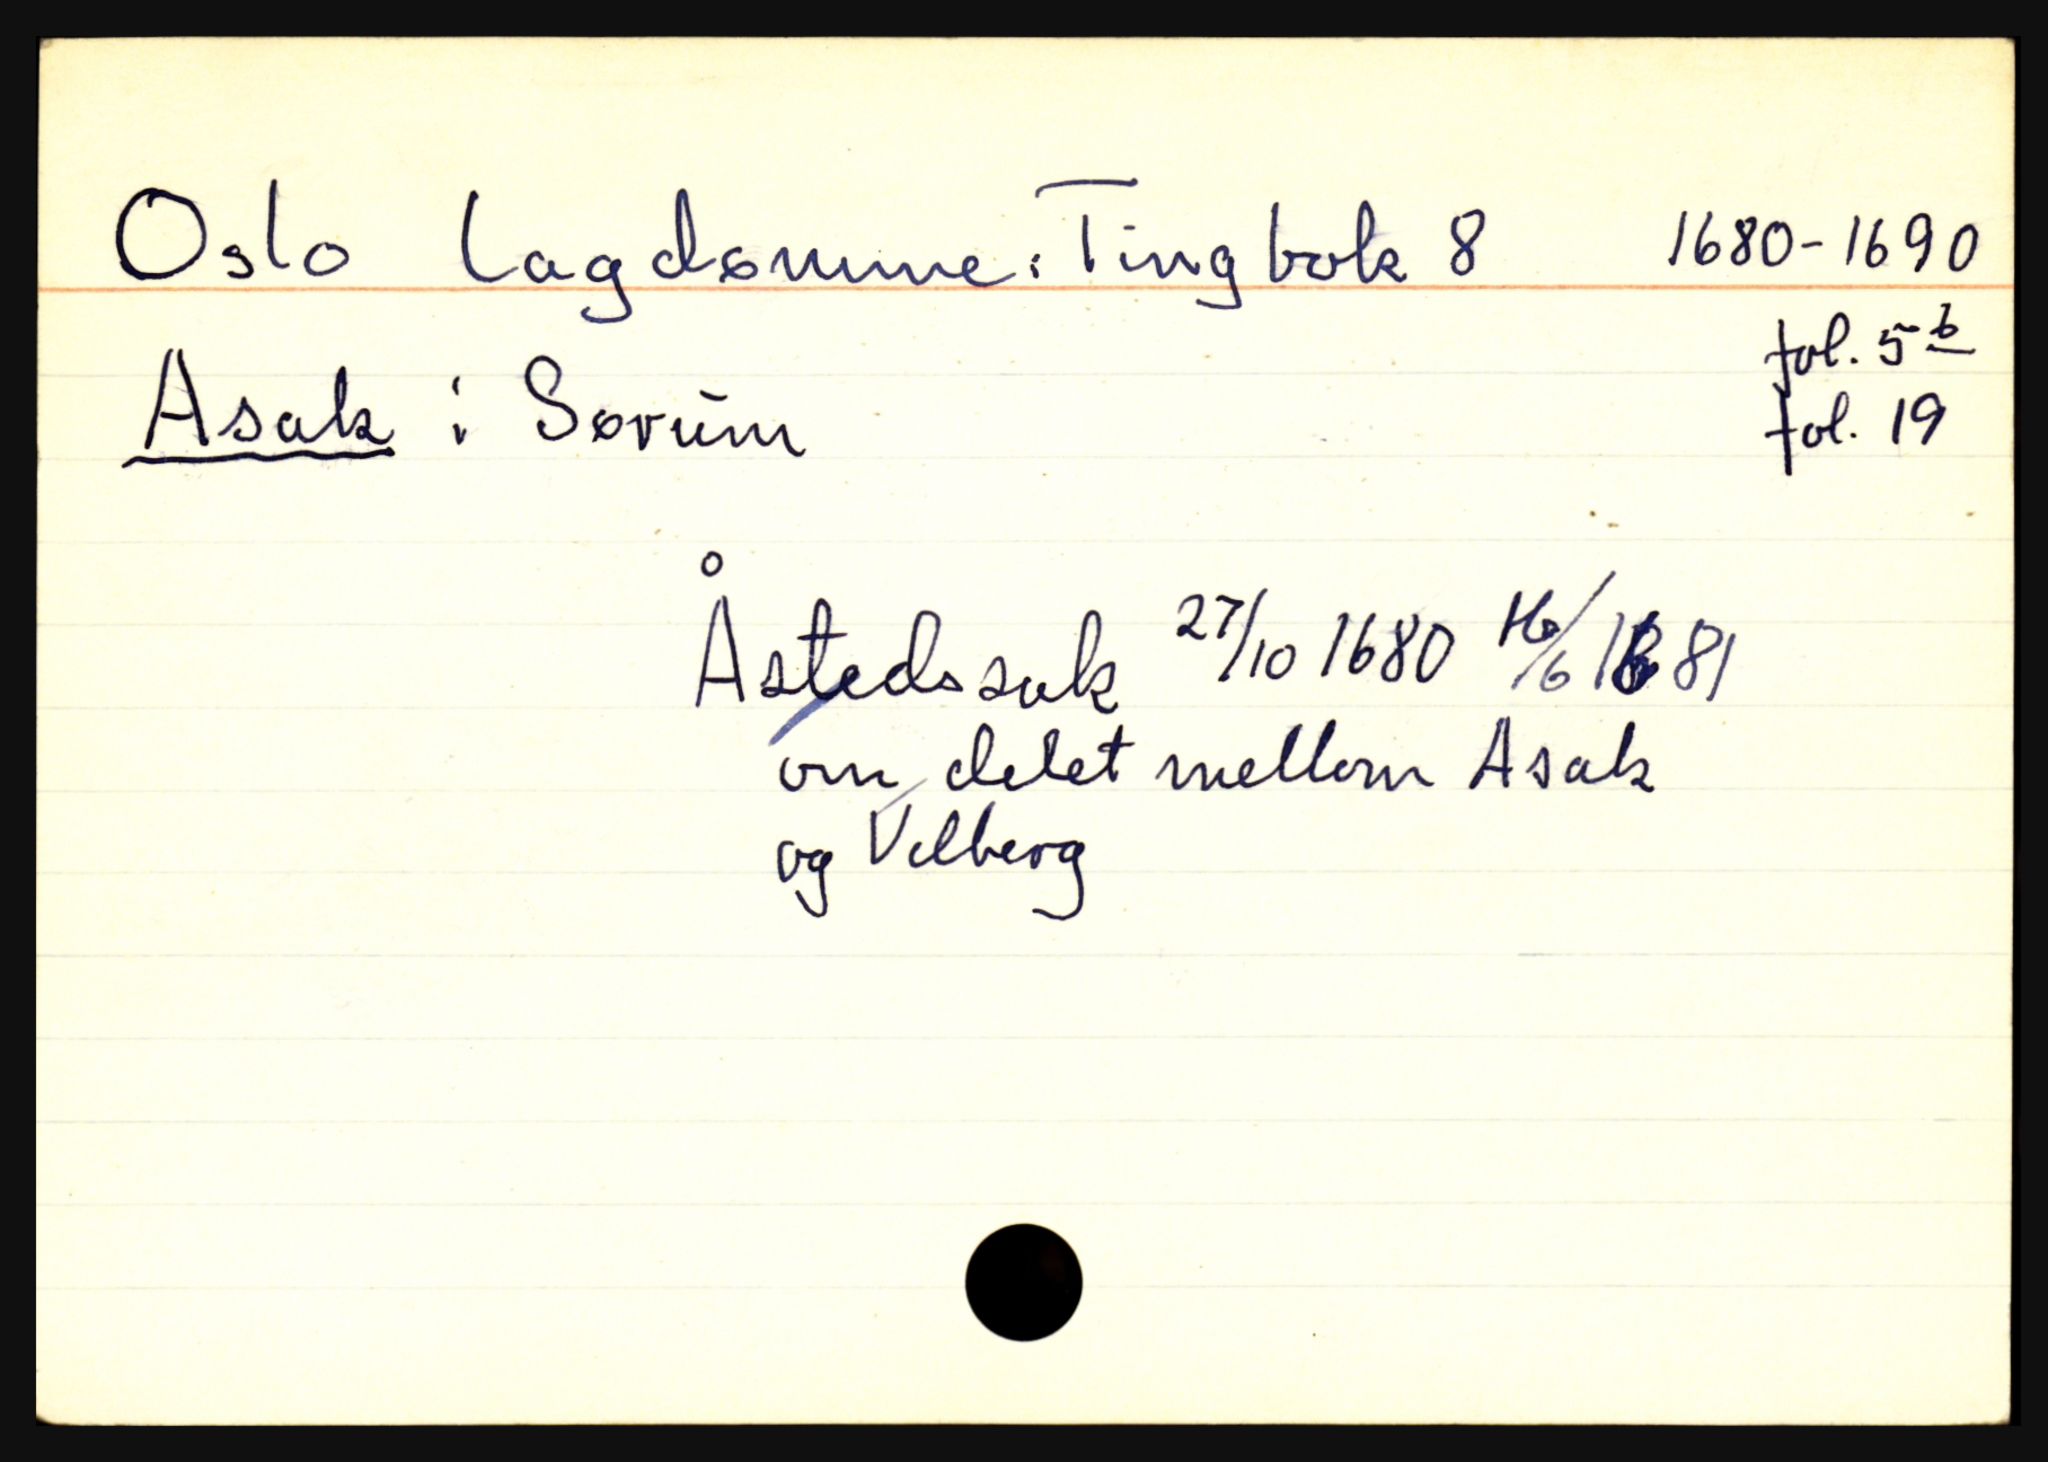 Oslo lagdømme: Tingbok 8 1680-1690
fol. 5b
Asak i Sørum fol. 19
Åstedssak 27/10 1680 16/6 1681
om delet mellom Asak
og Vilberg